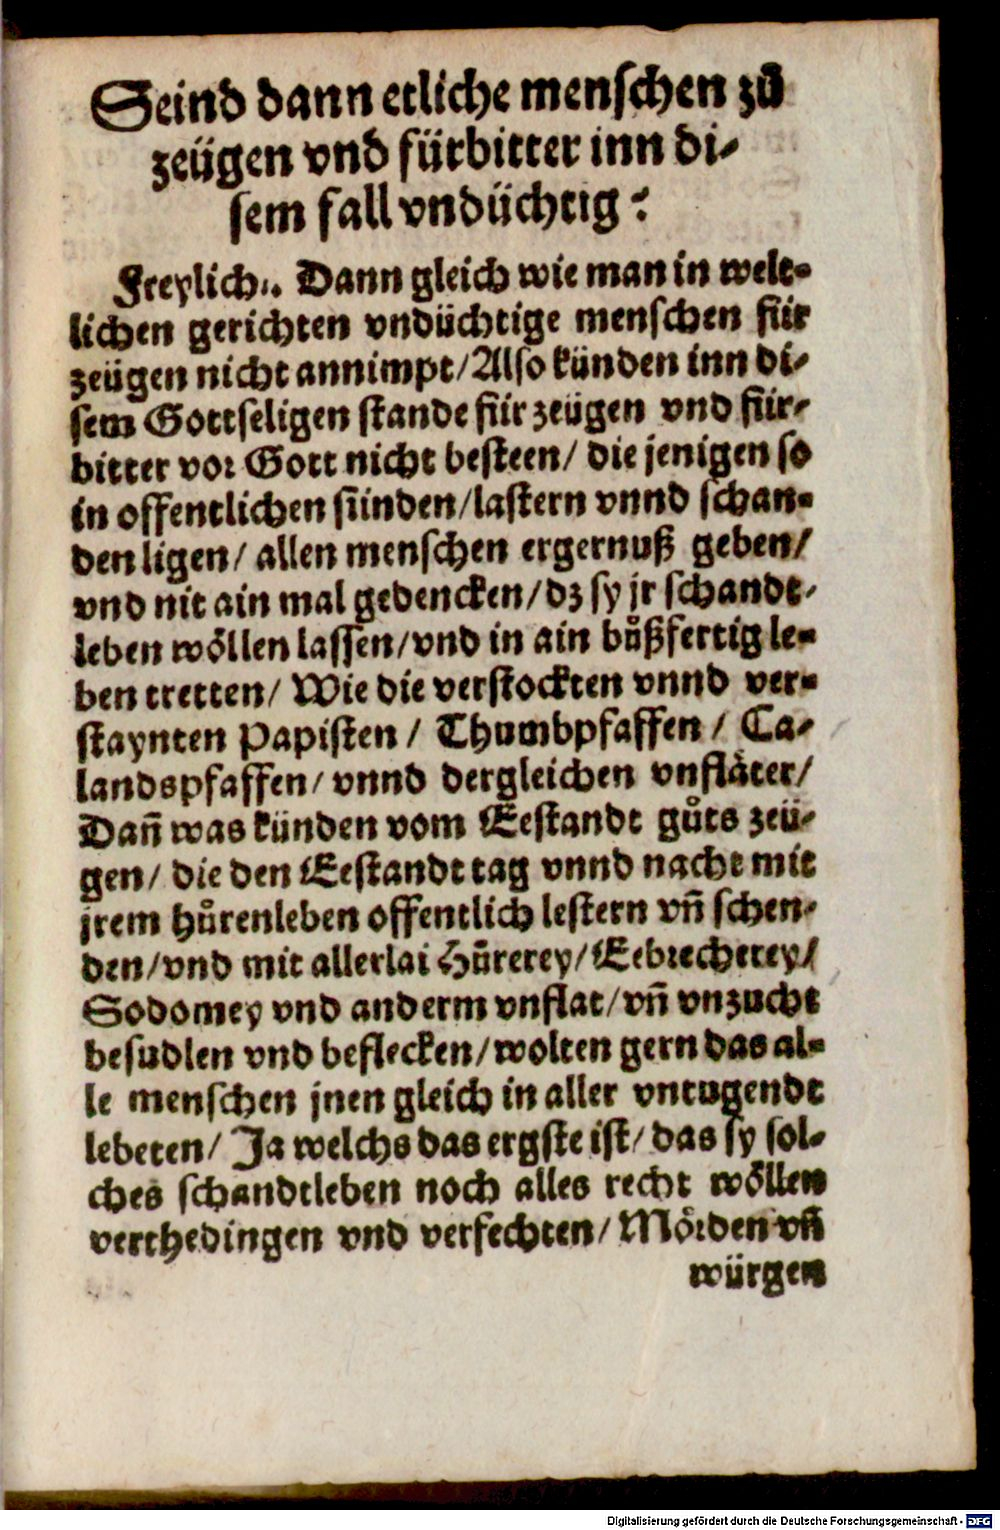 Seind dann etliche menschen zů
zeügen vnd fürbitter inn di⸗
sem fall vndüchtig?
Freylich. Dann gleich wie man in welt⸗
lichen gerichten vndüchtige menschen für
zeügen nicht annimpt/Also künden inn di⸗
sem Gottseligen stande für zeügen vnd für⸗
bitter vor Gott nicht besteen/ die jenigen so
in offentlichen sünden/lastern vnnd schan⸗
den ligen/ allen menschen ergernuß geben/
vnd nit ain mal gedencken/dz sy jr schandt⸗
leben wöllen lassen/vnd in ain bůßfertig le⸗
ben tretten/ Wie die verstockten vnnd ver⸗
staynten Papisten / Thumbpfaffen / Ca⸗
landspfaffen/ vnnd dergleichen vnfläter/
Dañ was künden vom Eestandt gůts zeü⸗
gen/ die den Eestandt tag vnnd nacht mit
jrem hůrenleben offentlich lestern vñ schen⸗
den/vnd mit allerlai Hůrerey/Eebrecherey/
Sodomey vnd anderm vnflat/vñ vnzucht
besudlen vnd beflecken/wolten gern das al⸗
le menschen jnen gleich in aller vntugendt
lebeten/ Ja welchs das ergste ist/ das sy sol⸗
ches schandtleben noch alles recht wöllen
verthedingen vnd verfechten/ Mörden vñ
würgen
Digitalisierung gefördert durch die Deutsche Forschungsgemeinschaft - DFG